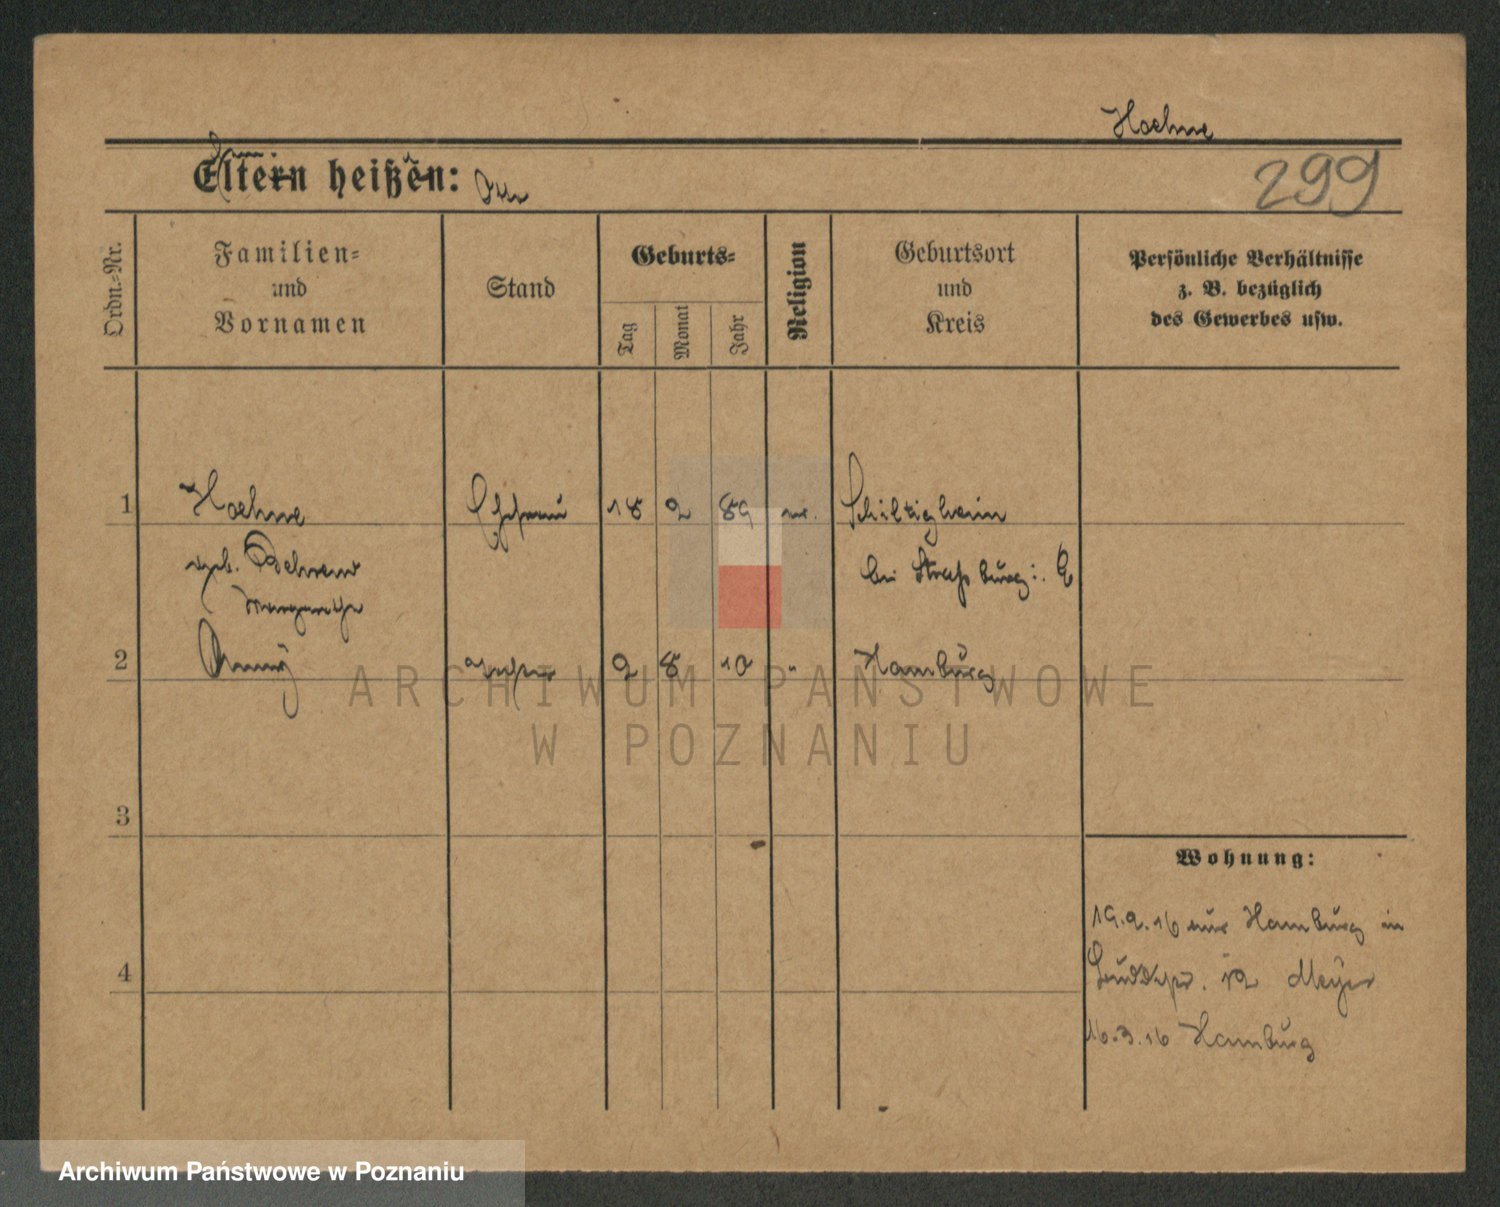 Hoehne
Eltern heißen:
299
Ordn.-Nr.
Familien-
und
Vornamen
Stand
Geburts-
Tag
Monat
Jahr
Religion
Geburtsort
und
Kreis
Persönliche Verhältnisse
z. B. bezüglich
des Gewerbes usw.
1 Hoehne Ehefrau 18 2 89 Schiltigheim
geb. Behrens bei Straßburg i. E
Margarethe
2 Anny Tochter 2 8 10 " Hamburg
3
4
Wohnung:
19.2.16 aus Hamburg in
12 Meyer
16.3.16 Hamburg
ARCHIWUM PAŃSTWOWE
W POZNANIU
Archiwum Państwowe w Poznaniu